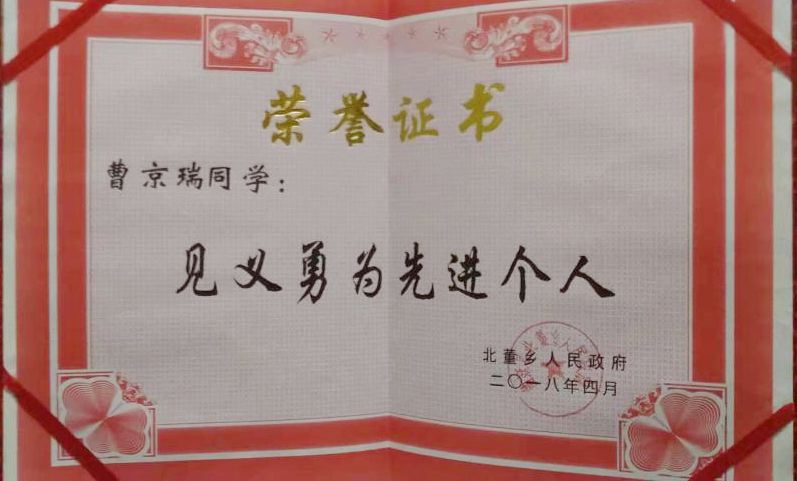 荣誉证书
曹京瑞同学：
见义勇为先进个人
北董乡人民政府
二〇一八年四月